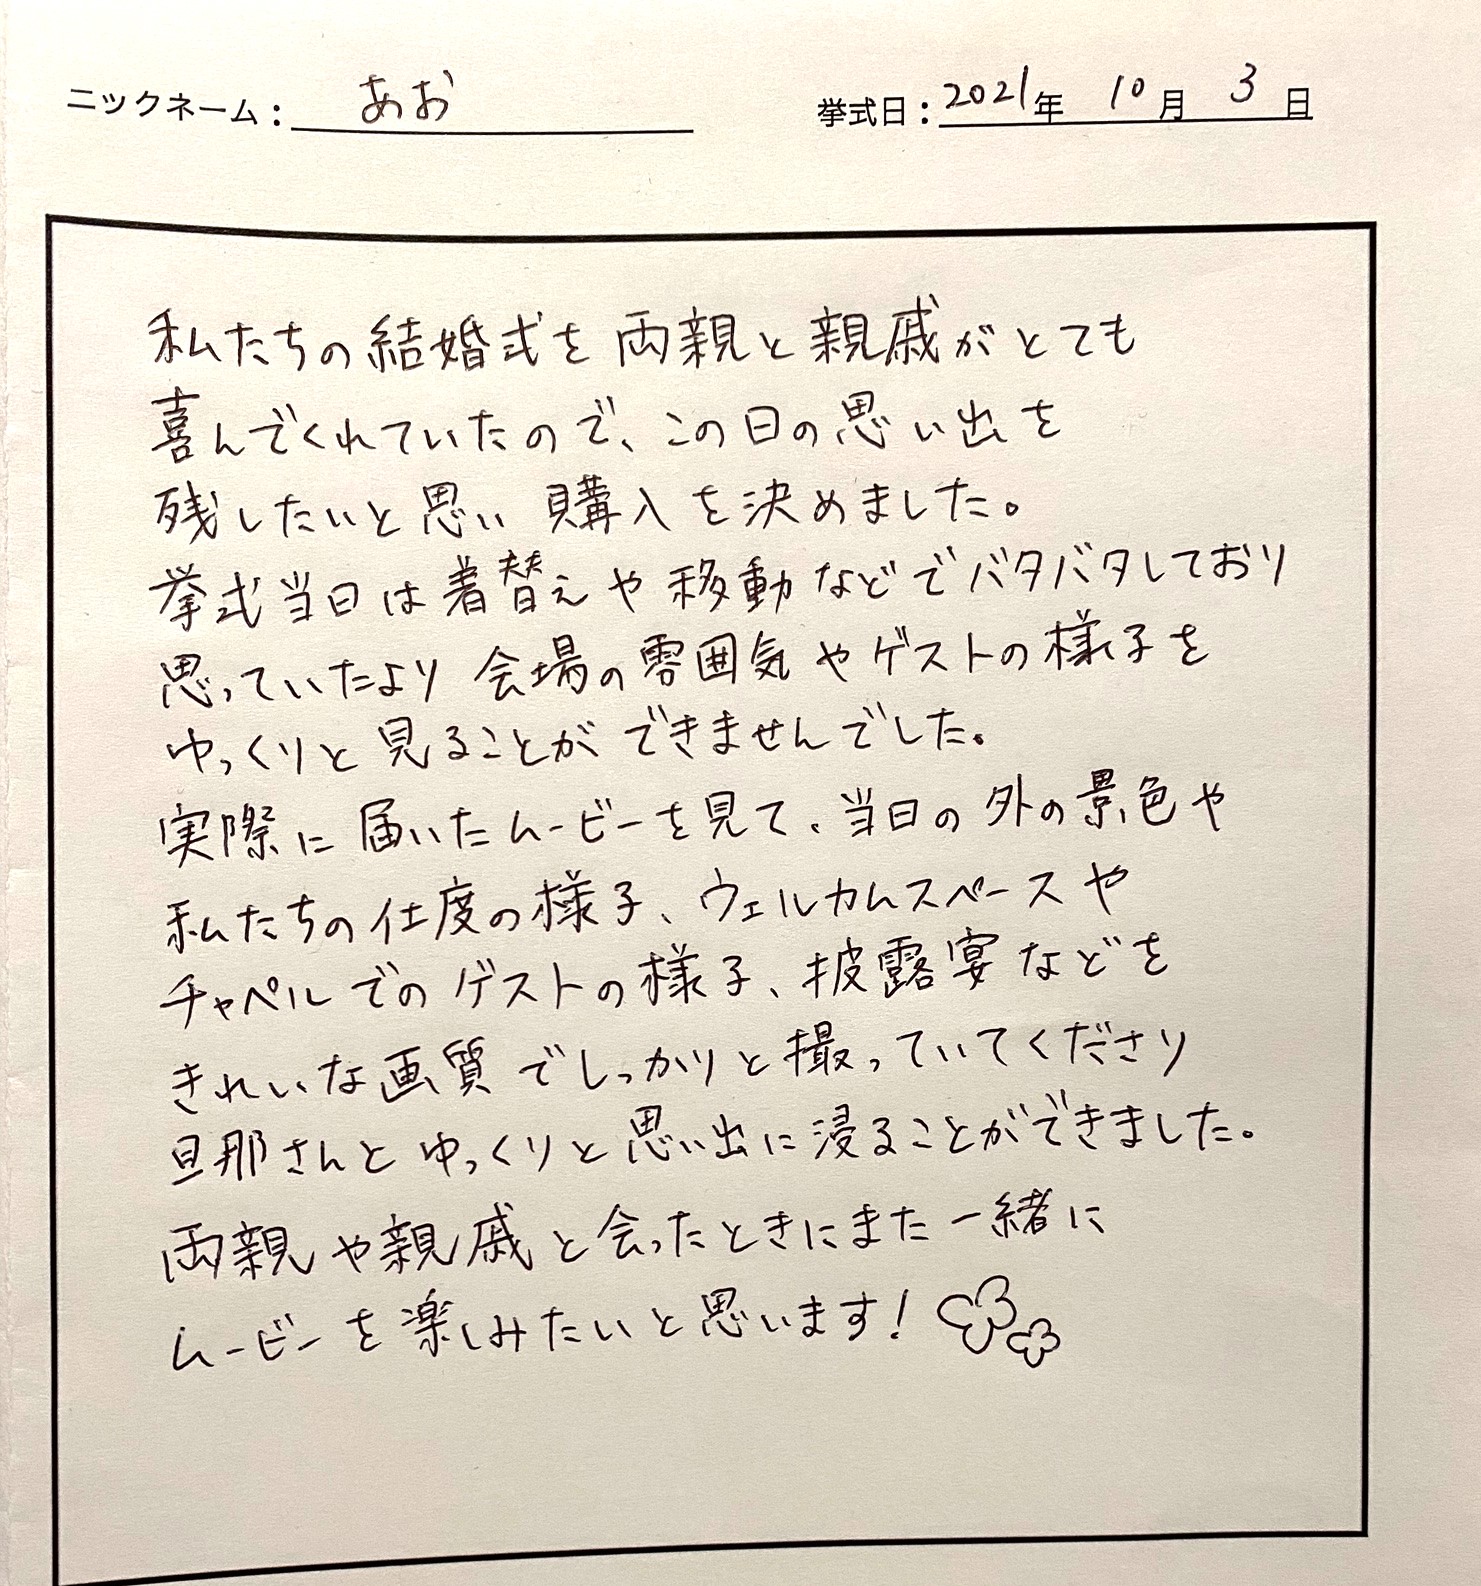 ニックネーム： あお
挙式日：2021年 10月 3日
私たちの結婚式を両親と親戚がとても
喜んでくれていたので、この日の思い出を
残したいと思い購入を決めました。
挙式当日は着替えや移動などでバタバタしており
思っていたより会場の雰囲気やゲストの様子を
ゆっくりと見ることができませんでした。
実際に届いたムービーを見て、当日の外の景色や
私たちの仕度の様子、ウェルカムスペースや
チャペルでのゲストの様子、披露宴などを
きれいな画質でしっかりと撮っていてくださり
旦那さんとゆっくりと思い出に浸ることができました。
両親や親戚と会ったときにまた一緒に
ムービーを楽しみたいと思います！